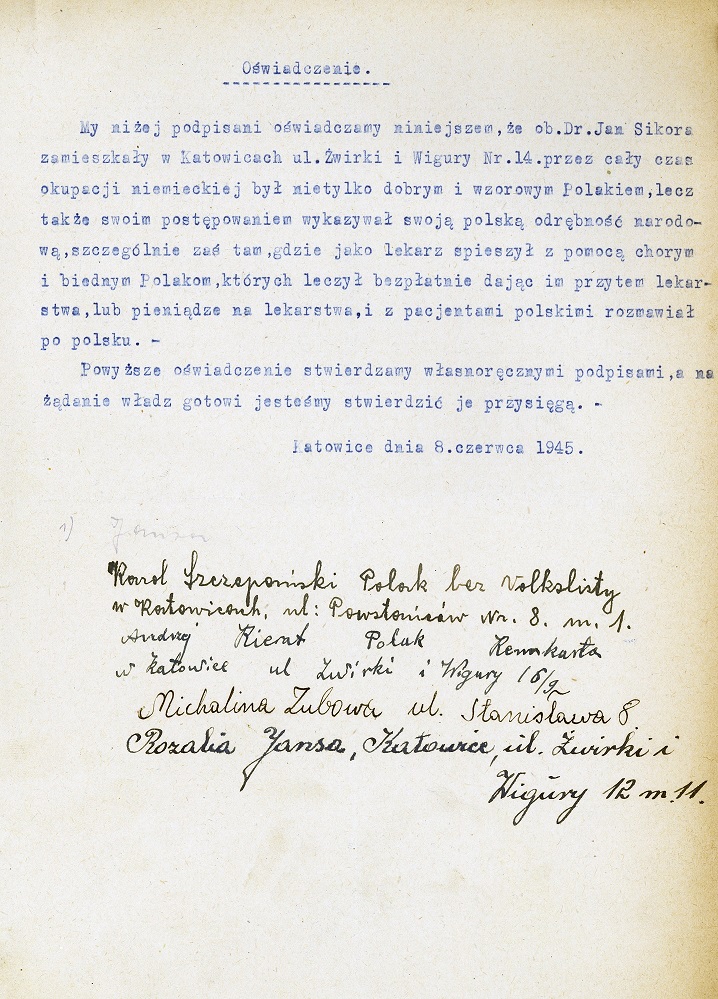 Oświadczenie.
My niżej podpisani oświadczamy niniejszem,że ob.Dr.Jan Sikora
zamieszkały w Katowicach ul.Żwirki i Wigury Nr.14.przez cały czas
okupacji niemieckiej był nietylko dobrym i wzorowym Polakiem,lecz
także swoim postępowaniem wykazywał swoją polską odrębność narodo-
wą,szczególnie zaś tam,gdzie jako lekarz spieszył z pomocą chorym
i biednym Polakom,których leczył bezpłatnie dając im przytem lekar-
stwa,lub pieniądze na lekarstwa,i z pacjentami polskimi rozmawiał
po polsku. -
Powyższe oświadczenie stwierdzamy własnoręcznymi podpisami,a na
żądanie władz gotowi jesteśmy stwierdzić je przysięgą. -
Katowice dnia 8.czerwca 1945.
1)
Karol Szczepański Polak bez Volkslisty
w Katowicach, ul: Powstańców Nr. 8. m. 1.
Andrzj Kierat Polak Kennkarta
w Katowice ul Zwirki i Wigury 16/9
Michalina Zubowa ul. Stanisława 8.
Rozalia Jansa, Katowice, ul. Żwirki i
Wigury 12 m. 11.